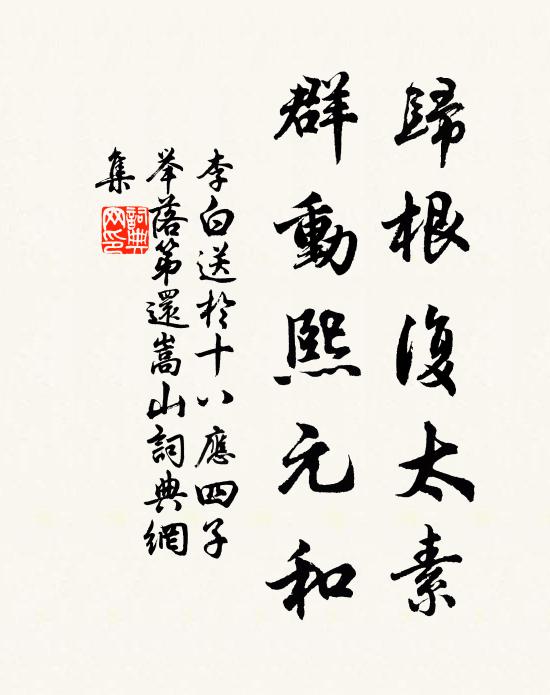 歸根復太素
群動熙元和
李白送於十八應四子
举落第還嵩山詞典網
集
詞典
网印